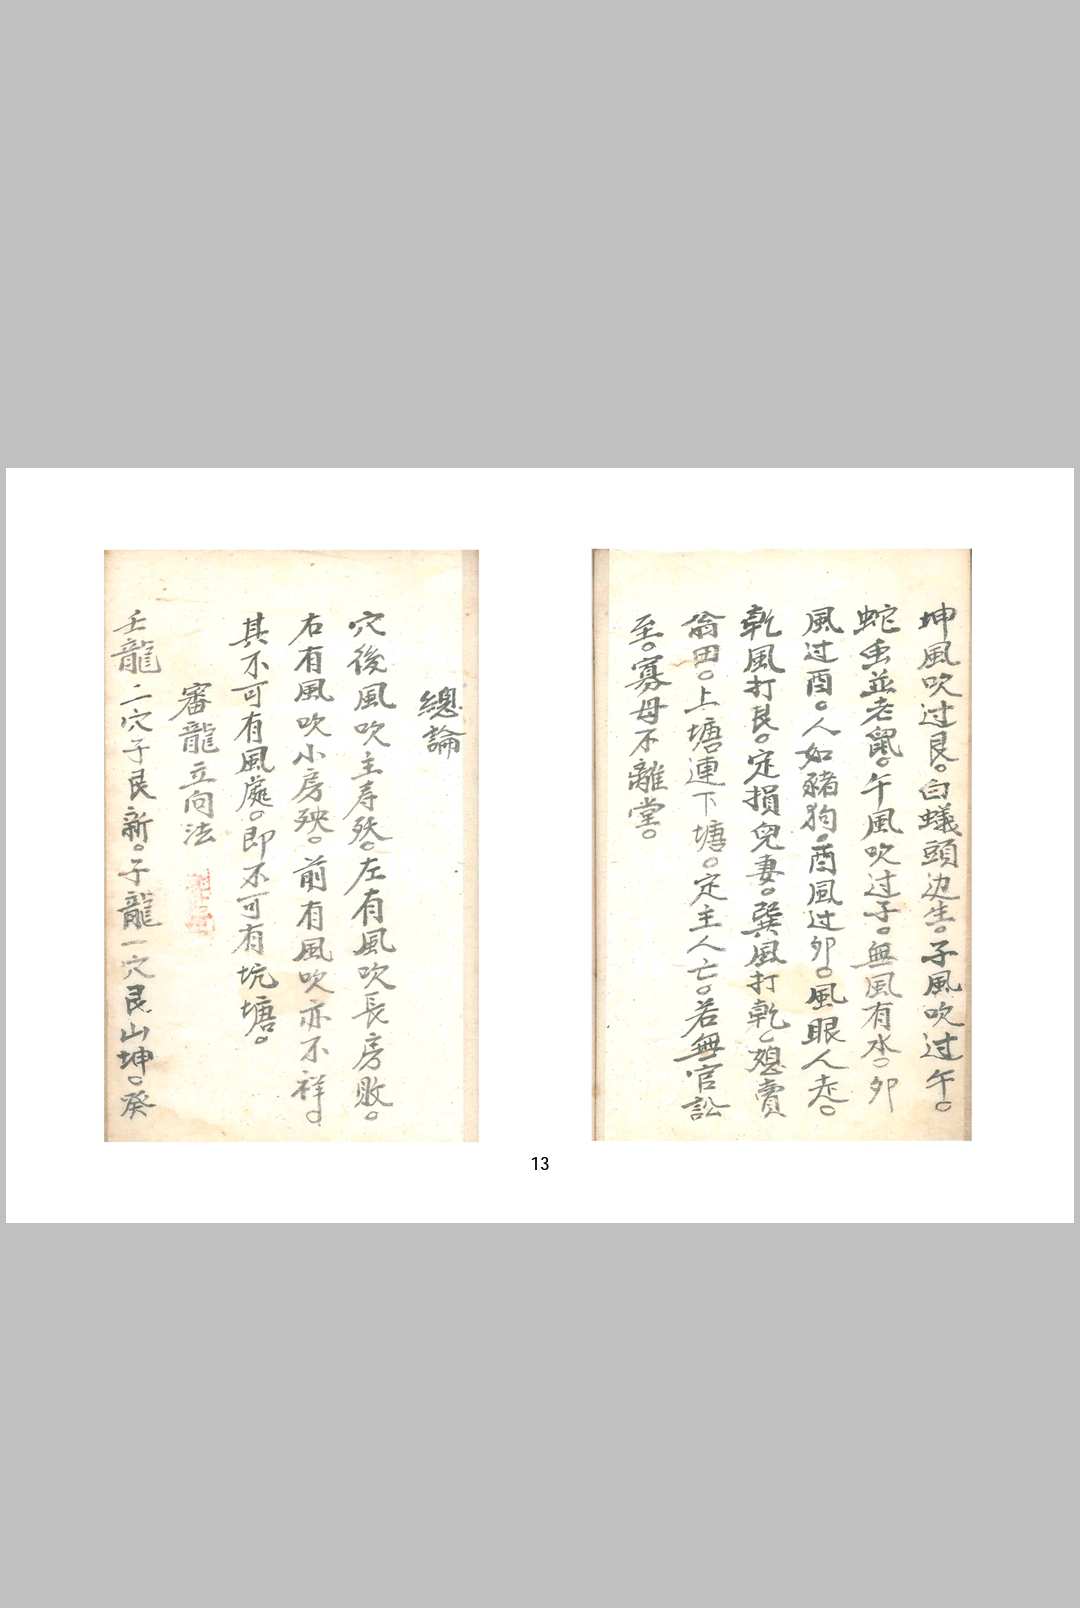 坤風吹过艮。白蟻頭边生。子風吹过午。
蛇虫並老鼠。午風吹过子。無風有水。卯
風过酉。人如豬狗。酉風过卯。風眼人走。
乾風打艮。定損兒妻。巽風打乾。賣
翁田。上塘連下塘。定主人亡。若無官訟
至。寡母不離堂。
總論
穴後風吹主寿殀。左有風吹長房敗。
右有風吹小房殃。前有風吹亦不祥。
其不可有風處。即不可有坑塘。
審龍立向法
壬龍二穴子艮新。子龍一穴艮山坤。癸
13